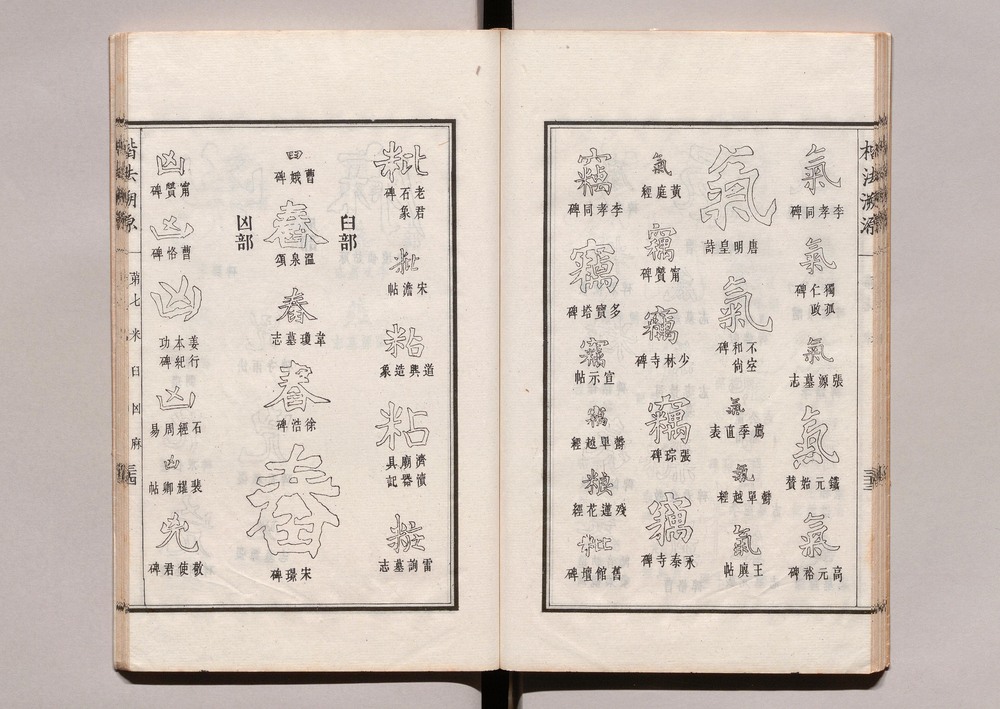 楷法溯源
氣
李孝同碑
氣
獨孤仁政碑
氣
張源墓志
氣
鐵元始贊
氣
高元裕碑
氣
唐明皇詩
氣
不空和尚碑
氣
薦季直表
氣
欝單越經
氣
王廙帖
氣
黃庭經
竊
甯贙碑
竊
少林寺碑
竊
張琮碑
竊
永泰寺碑
竊
李孝同碑
竊
多寶塔碑
竊
宣示帖
竊
欝單越經
殘蓮花經
粃
舊館壇碑
粃
老君石象碑
粃
宋儋帖
粘
道興造象
粘
濟瀆廟器具記
粧
雷詢墓志
臼部
臼
曹娥碑
舂
溫泉頌
舂
韋瓊墓志
舂
徐浩碑
舂
宋璟碑
凶部
凶
甯贙碑
凶
曹恪碑
凶
姜行本紀功碑
凶
石經周易
凶
裴耀卿帖
兇
敬使君碑
楷法溯源 第七 米 臼 凶 麻